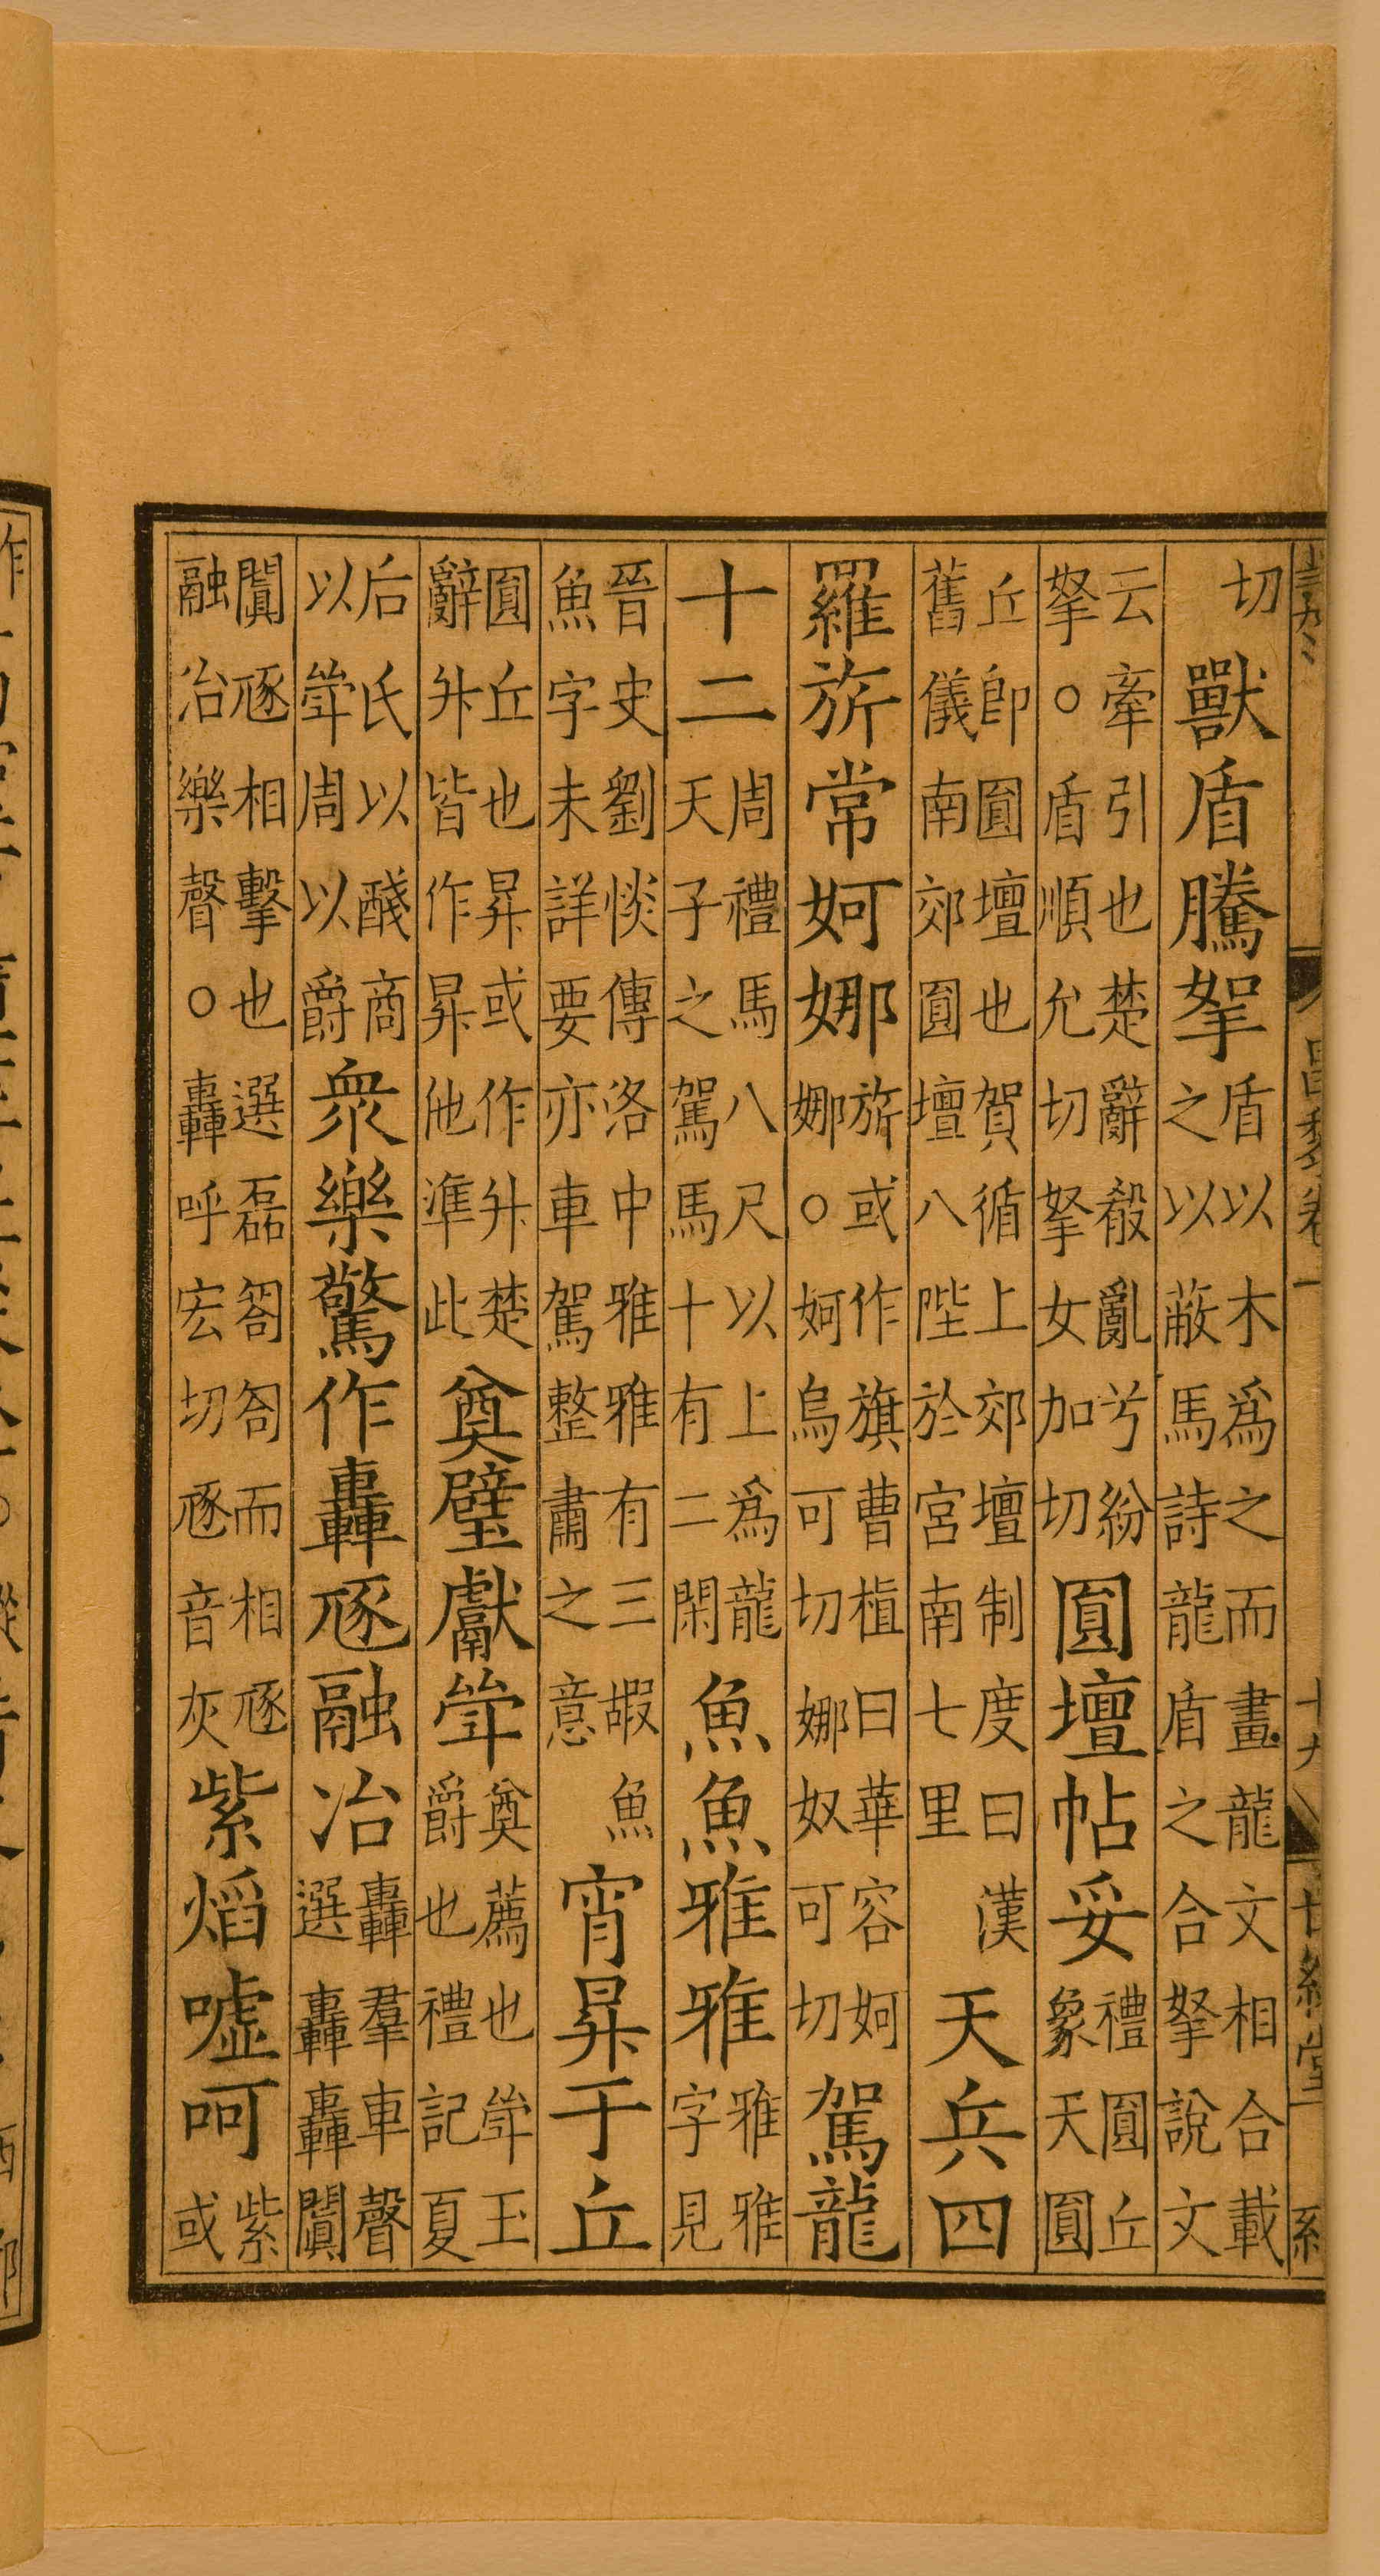 昌黎卷一
世綵堂
切獸盾騰拏盾以木爲之而畫龍文相合載之以蔽馬詩龍盾之合拏說文
云牽引也楚辭殽亂兮紛拏○盾順允切拏女加切圓壇帖妥禮圓丘象天圓
丘即圓壇也賀循上郊壇制度曰漢舊儀南郊圓壇八陛於宮南七里天兵四
羅旂常妸娜旂或作旗曹植曰華容妸娜○妸烏可切娜奴可切駕龍
十二周禮馬八尺以上爲龍天子之駕馬十有二閑魚魚雅雅雅雅字見
晉史劉惔傳洛中雅雅有三嘏魚魚字未詳要亦車駕整肅之意宵昇于丘
圓丘也昇或作升楚辭升皆作昇他準此奠璧獻斝奠薦也斝玉爵也禮記夏
后氏以醆商以斝周以爵衆樂驚作轟豗融冶轟羣車聲選轟轟闐
闐豗相擊也選磊匒匒而相豗融冶樂聲○轟呼宏切豗音灰紫焰噓呵紫或